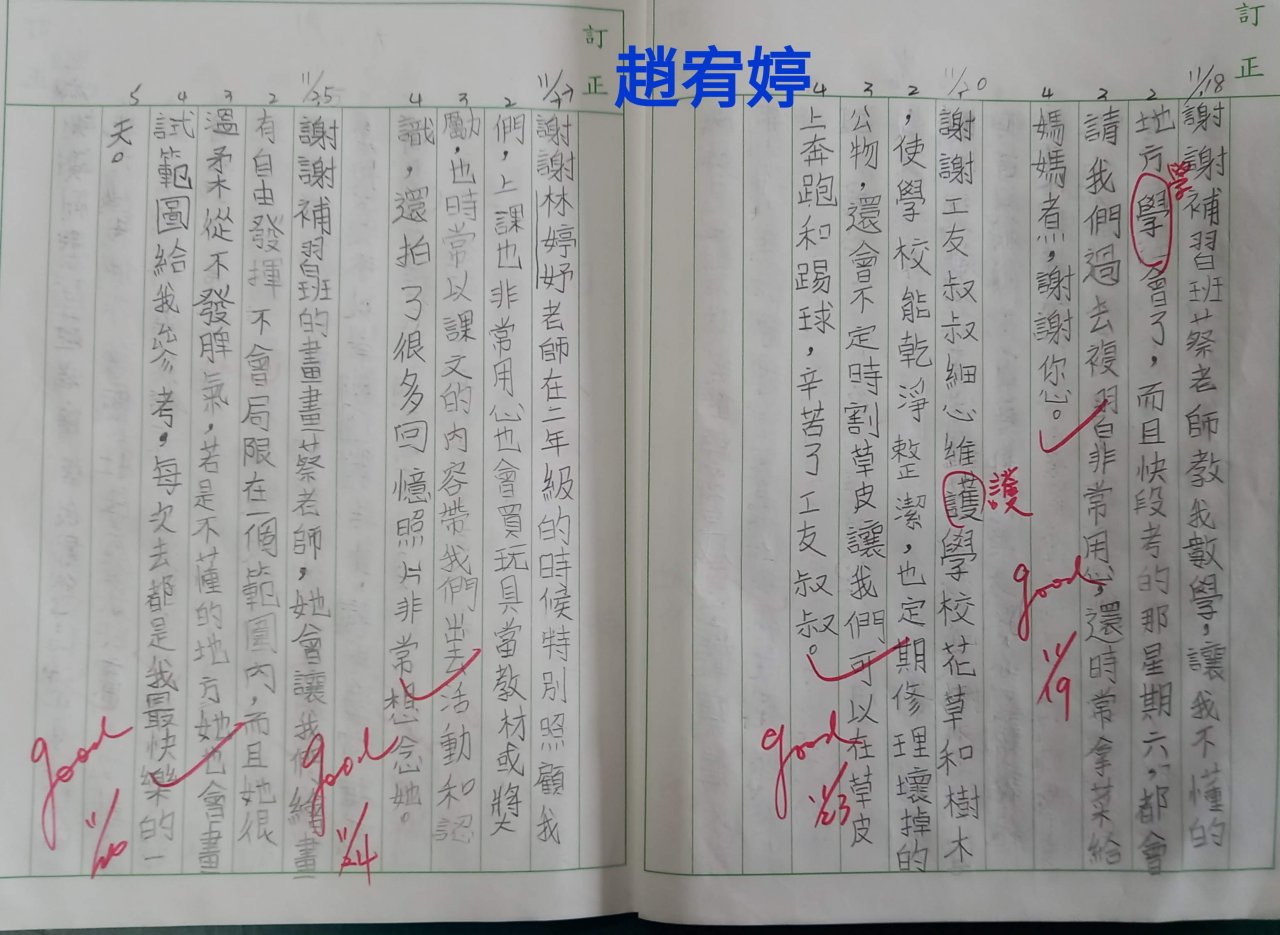 趙宥婷
訂正
11/18
謝謝補習班蔡老師教我數學，讓我不懂的
2
地方學會了，而且快段考的那星期六，都會
學
3
請我們過去複習非常用心，還時常拿菜給
4
媽媽煮，謝謝您。
good
11/19
11/20
謝謝工友叔叔細心維護學校花草和樹木
護
2
，使學校能乾淨整潔，也定期修理壞掉的
3
公物，還會不定時割草皮讓我們可以在草皮
4
上奔跑和踢球，辛苦了工友叔叔。
good
11/23
訂正
謝謝林婷妤老師在二年級的時候特別照顧我
2
們，上課也非常用心也會買玩具當教材或獎
3
勵，也時常以課文的內容帶我們出去活動和認
4
識，還拍了很多回憶照片非常想念她。
good
11/24
11/25
謝謝補習班的畫畫蔡老師，她會讓我們繪畫
2
有自由發揮不會局限在一個範圍內，而且她很
3
溫柔從不發脾氣，若是不懂的地方她也會畫
4
試範圖給我參考，每次去都是我最快樂的一
5
天。
good